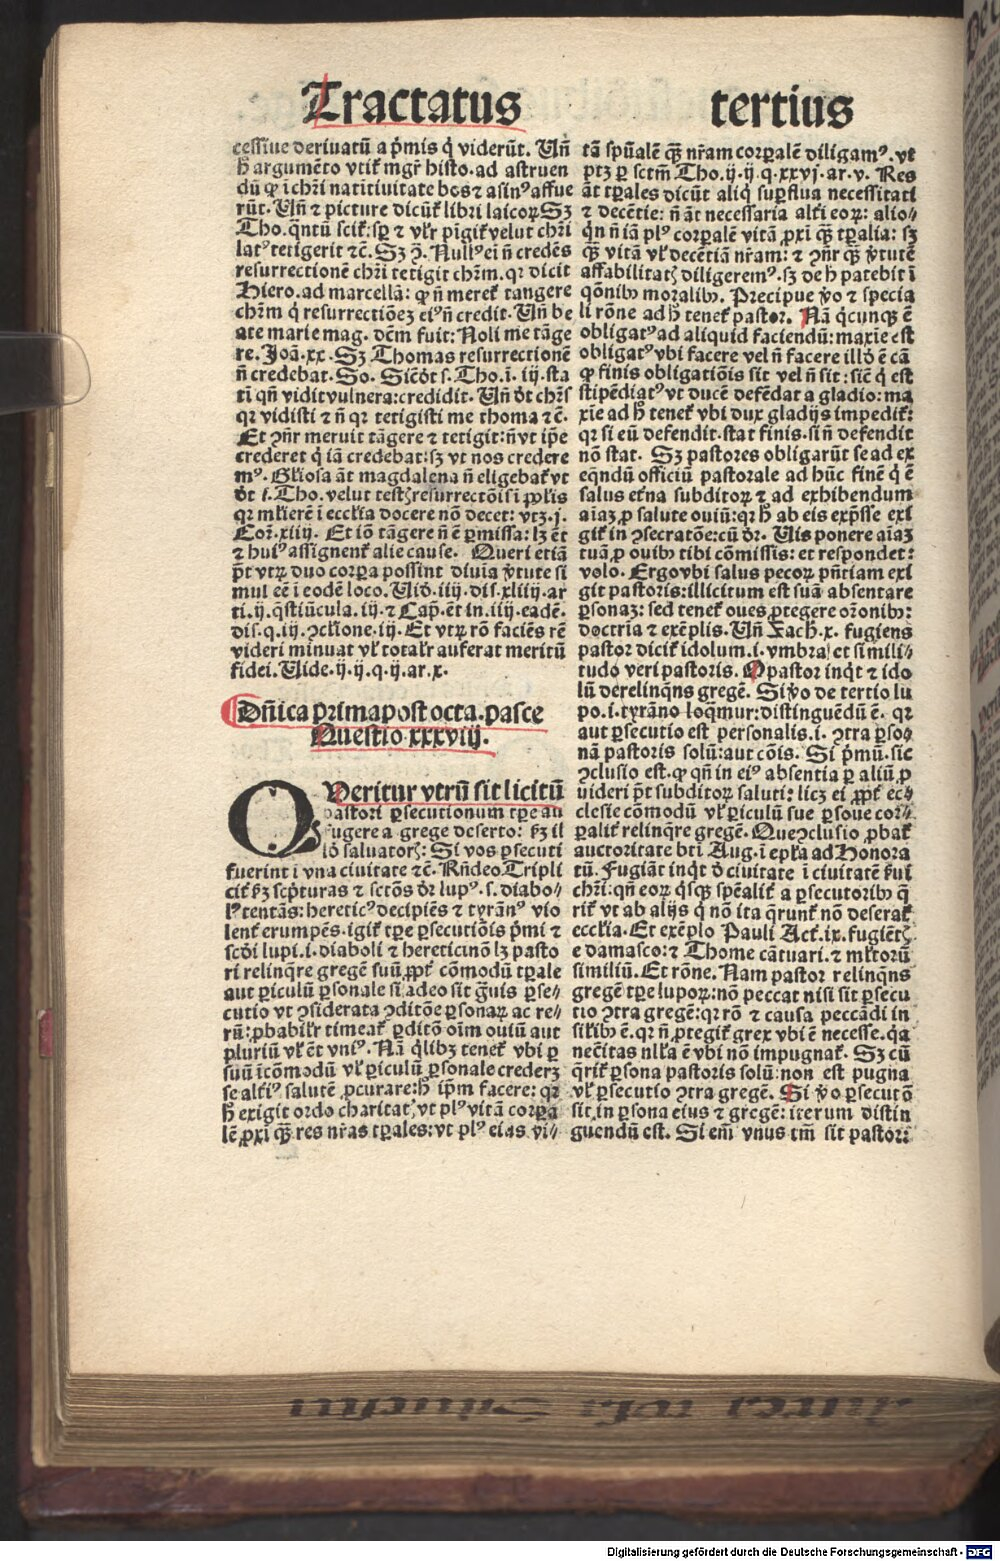 Tractatus tertius
cessiue deriuatū a p̄mis q̇ viderūt. Uñ
h̄ argumēto vtiť mgr̄ histo. ad astruen
dū ꝙ i chr̄i natiuitate bos ⁊ asinꝰ affue
rūt. Uñ ⁊ picture dicūť libri laicoꝝ Sꝫ
Tho. q̄ntū sciť: sꝑ ⁊ vl'r pīgiť velut chr̄i
latꝰ tetigerit ⁊c̄. Sꝫ ꝯ̄. Nullꝰ ei n̄ credēs
resurrectionē chr̄i tetigit chr̄m. qꝛ dicit
Hiero. ad marcellā: ꝙ n̄ mereť tangere
chr̄m q̇ resurrectiōeꝫ eiꝰ n̄ credit. Uñ be
ate marie mag. dc̄m fuit: Noli me tāge
re. Joā. xx. Sꝫ Thomas resurrectionē
n̄ credebat. So. Sicdt̄ s. Tho. ī. iij. sta
tī qn̄ vidit vulnera: credidit. Uñ dt̄ chr̄s
qꝛ vidisti ⁊ n̄ qꝛ tetigisti me thoma ⁊c̄.
Et ꝯn̄r meruit tāgere ⁊ tetigit: n̄ vt ip̄e
crederet q̇ iā credebat: sꝫ vt nos credere
mꝰ. Gl'iosa āt magdalena n̄ eligebať vt
dt̄ s. Tho. velut testꝭ resurrectōis i ꝓp̄lis
qꝛ ml'ierē i eccl'ia docere nō decet: vtꝫ. j.
Cor̄. xiiij. Et iō tāgere n̄ ē ꝑmissa: lꝫ ēt
⁊ huiꝰ assignenť alie cause. Queri etiā
p̄t vtꝝ duo corꝑa possint diuīa v̄tute si
mul eē i eodē loco. Uid̄. iiij. dis. xliiij. ar
ti. ij. q̄stiūcula. iij. ⁊ Cap̄. ēt in. iiij. eadē.
dis. q. iij. ꝯcl'ione. iij. Et vtꝝ rō faciēs rē
videri minuat vl' total'r auferat meritū
fidei. Uide. ij. ij. q. ij. ar. x.
Dn̄ica prima post octa. pasce
Questio xxxviij.
Queritur vtrū sit licitū
pastori ꝑsecutionum tꝑe au
fugere a grege deserto: ẜꝫ il
lō saluatorꝭ: Si vos ꝑsecuti
fuerint i vna ciuitate ⁊c̄. Rn̄deo Tripli
citť ẜꝫ scp̄turas ⁊ sctōs dr̄ lupꝰ. s. diabo⸗
lꝰ tentās: hereticꝰ decipiēs ⁊ tyrānꝰ vio
lenť erumpēs. igiť tꝑe ꝑsecutiōis p̄mi ⁊
scd̄i lupi. i. diaboli ⁊ heretici nō lꝫ pasto
ri relinq̄re gregē suū ꝓpť cōmodū tꝑale
aut ꝑiculū ꝑsonale si adeo sit guis ꝑse⸗
cutio vt ꝯsiderata ꝯditōe ꝑsonaꝝ ac re⸗
rū: ꝓbabilr̄ timeať ꝑditō oīm ouiū aut
pluriū vl' ēt vniꝰ. Nā q̇libꝫ teneť vbi ꝑ
suū icōmodū vl' ꝑiculū ꝑsonale crederꝫ
se altiꝰ salutē ꝓcurare: h̄ ip̄m facere: qꝛ
h̄ exigit ordo charitatꝭ, vt plꝰ vitā corꝑa
lē ꝓxi q̄ꝫ res nr̄as tꝑales: vt plꝰ eias vi⸗
tā spūalē q̄ꝫ nr̄am corꝑalē diligamꝰ. vt
ptꝫ ꝑ sctm̄ Tho. ij. ij. q. xxvj. ar. v. Res
āt tꝑales dicūt aliq̇ suꝑflua necessitati
⁊ decētie: n̄ āt necessaria altī eoꝝ: alio⸗
q̇n n̄ iā plꝰ corꝑalē vitā ꝓxi q̄ꝫ tꝑalia: sꝫ
q̄ꝫ vitā vl' decētiā nr̄am: ⁊ ꝯn̄r q̄ꝫ v̄tutē
affabilitatꝭ diligeremꝰ. sꝫ de h̄ patebit ī
qōnibꝰ moralibꝰ. Precipue v̄o ⁊ specia
li rōne ad h̄ teneť pastor. Nā q̇cunqꝫ ē
obligatꝰ ad aliquid faciendū: maxīe est
obligatꝰ vbi facere vel n̄ facere illd̄ ē cā
ꝙ finis obligatiōis sit vel n̄ sit: sic̄ q̇ est
stipēdiatꝰ vt ducē defēdat a gladio: ma
xīe ad h̄ teneť vbi dux gladijs impediť:
qꝛ si eū defendit. stat finis. si n̄ defendit
nō stat. Sꝫ pastores obligarūt se ad ex
eqn̄dū officiū pastorale ad hūc finē q̇ ē
salus et̄na subditoꝝ ⁊ ad exhibendum
aīaꝫ ꝓ salute ouiū: qꝛ h̄ ab eis exp̄sse exi
giť in ꝯsecratōe: cū dr̄. Uis ponere aīaꝫ
tuā ꝓ ouibꝰ tibi cōmissis: et respondet:
volo. Ergo vbi salus pecoꝝ pn̄tiam exi
git pastoris: illicitum est suā absentare
ꝑsonaꝫ: sed teneť oues ꝓtegere or̄onibꝰ:
doctrīa ⁊ exēplis. Uñ Zach̄. x. fugiens
pastor diciť idolum. i. vmbra, et simili⸗
tudo veri pastoris. O pastor inq̇t ⁊ ido
lū derelinq̄ns gregē. Si v̄o de tertio lu
po. i. tyrāno loq̄mur: distinguēdū ē. qꝛ
aut ꝑsecutio est personalis. i. ꝯtra ꝑso⸗
nā pastoris solū: aut cōis. Si p̄mū. sic
ꝯclusio est. ꝙ qn̄ in eiꝰ absentia ꝑ aliū ꝓ
uideri p̄t subditoꝝ saluti: licꝫ ei ꝓpť ec⸗
clesie cōmodū vl' ꝑiculū sue ꝑsone cor⸗
ꝑaliť relinq̄re gregē. Que ꝯclusio ꝓbať
auctoritate bt̄i Aug. i epl'a ad Honora
tū. Fugiāt inq̇t d̄ ciuitate i ciuitatē ẜui
chr̄i: qn̄ eoꝝ q̇sqꝫ spēaliť a ꝑsecutoribꝰ q̄
riť vt ab alijs q̇ nō ita q̄runť nō deserať
eccl'ia. Et exēplo Pauli Act̄. ix. fugiētꝭ
e damasco: ⁊ Thome cātuari. ⁊ ml'toꝝ
similiū. Et rōne. Nam pastor relinq̄ns
gregē tꝑe lupoꝝ: nō peccat nisi sit ꝑsecu
tio ꝯtra gregē: qꝛ rō ⁊ causa peccādi in
sil'ibꝰ ē. qꝛ n̄ ꝓtegiť grex vbi ē necesse. q̇a
nec̄itas nl'la ē vbi nō impugnať. Sꝫ cū
q̄riť ꝑsona pastoris solū: non est pugna
vl' ꝑsecutio ꝯtra gregē. Si v̄o ꝑsecutō
sit in ꝑsona eius ⁊ gregē: iterum distin
guendū est. Si em̄ vnus tm̄ sit pastor:
Digitalisierung gefördert durch die Deutsche Forschungsgemeinschaft - DFG